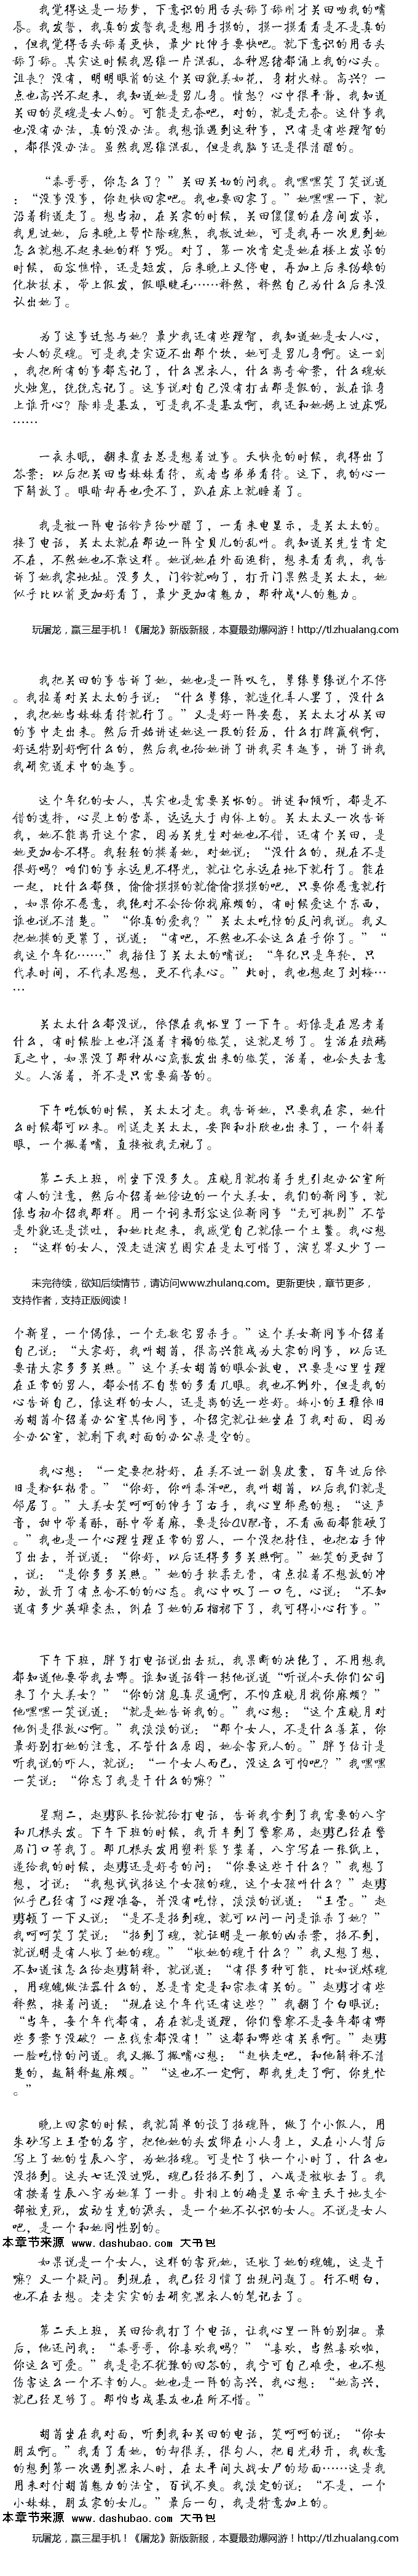 我觉得这是一场梦，下意识的用舌头舔了舔刚才关田吻我的嘴
唇。我发誓，我真的发誓我是想用手摸的，摸一摸看看是不是真的
，但我觉得舌头舔着更快，最少比伸手要快吧。就下意识的用舌头
舔了舔。其实这时候我思维一片混乱，各种思绪都涌上我的心头。
沮丧？没有，明明眼前的这个关田貌美如花，身材火辣。高兴？一
点也高兴不起来，我知道她是男儿身。愤怒？心中很平静，我知道
关田的灵魂是女人的。可能是无奈吧，对的，就是无奈。这件事我
也没有办法，真的没办法。我想谁遇到这种事，只有是有些理智的
，都很没办法。虽然我思维混乱，但是我脑子还是很清醒的。
“泰哥哥，你怎么了？”关田关切的问我。我嘿嘿笑了笑说道
：“没事没事，你赶快回家吧。我也要回家了。”她嘿嘿一下，就
沿着街道走了。想当初，在关家的时候，关田傻傻的在房间发呆，
我见过她，后来晚上帮忙除魂煞，我救过她，可是我再一次见到她
怎么就想不起来她的样子呢。对了，第一次肯定是她在楼上发呆的
时候，面容憔悴，还是短发，后来晚上又停电，再加上后来伪娘的
化妆技术，带上假发，假眼睫毛……释然，释然自己为什么后来没
认出她了。
为了这事迁怒与她？最少我还有些理智，我知道她是女人心，
女人的灵魂。可是我老实迈不出那个坎，她可是男儿身啊。这一刻
，我把所有的事都忘记了，什么黑衣人，什么离奇命案，什么魂妖
火烛鬼，统统忘记了。这事说对自己没有打击那是假的，放在谁身
上谁开心？除非是基友，可是我不是基友啊，我还和她妈上过床呢
……
一夜未眠，翻来覆去总是想着过事。天快亮的时候，我得出了
答案：以后把关田当妹妹看待，或者当弟弟看待。这下，我的心一
下解放了。眼睛却再也受不了，趴在床上就睡着了。
我是被一阵电话铃声给吵醒了，一看来电显示，是关太太的。
接了电话，关太太就在那边一阵宝贝儿的乱叫。我知道关先生肯定
不在，不然她也不敢这样。她说她在外面逛街，想来看看我，我告
诉了她我家地址。没多久，门铃就响了，打开门果然是关太太，她
似乎比以前更加好看了，最少更加有魅力，那种成·人的魅力。
玩屠龙，赢三星手机！《屠龙》新版新服，本夏最劲爆网游！http://tl.zhualang.com
我把关田的事告诉了她，她也是一阵叹气，孽缘孽缘说个不停
。我拉着对关太太的手说：“什么孽缘，就造化弄人罢了，没什么
，我把她当妹妹看待就行了。”又是好一阵安慰，关太太才从关田
的事中走出来。然后开始讲述她这一段的经历，什么打牌赢钱啊，
好运特别好啊什么的，然后我也给她讲了讲我买车趣事，讲了讲我
我研究道术中的趣事。
这个年纪的女人，其实也是需要关怀的。讲述和倾听，都是不
错的选择，心灵上的营养，远远大于肉体上的。关太太又一次告诉
我，她不能离开这个家，因为关先生对她也不错，还有个关田，是
她更加舍不得。我轻轻的搂着她，对她说：“没什么的，现在不是
很好吗？咱们的事永远见不得光，就让它永远在地下就行了。能在
一起，比什么都强，偷偷摸摸的就偷偷摸摸的吧，只要你愿意就行
，如果你不愿意，我绝对不会给你找麻烦的，有时候爱这个东西，
谁也说不清楚。”“你真的爱我？”关太太吃惊的反问我说。我又
把她搂的更紧了，说道：“有吧，不然也不会这么在乎你了。”“
我这个年纪……”我捂住了关太太的嘴说：“年纪只是年轮，只
代表时间，不代表思想，更不代表心。”此时，我也想起了刘梅…
…
关太太什么都没说，依偎在我怀里了一下午。好像是在思考着
什么，有时候脸上也洋溢着幸福的微笑，这就足够了。生活在琉璃
瓦之中，如果没了那种从心底散发出来的微笑，活着，也会失去意
义。人活着，并不是只需要痛苦的。
下午吃饭的时候，关太太才走。我告诉她，只要我在家，她什
么时候都可以来。刚送走关太太，安阳和朴欣也出来了，一个斜着
眼，一个撇着嘴，直接被我无视了。
第二天上班，刚坐下没多久。庄晓月就拍着手先引起办公室所
有人的注意，然后介绍着她傍边的一个大美女，我们的新同事，就
像当初介绍我那样。用一个词来形容这位新同事“无可挑剔”不管
是外貌还是谈吐，和她比起来，我感觉自己就像一个土鳖。我心想
：“这样的女人，没走进演艺圈实在是太可惜了，演艺界又少了一
未完待续，欲知后续情节，请访问www.zhulang.com。更新更快，章节更多，
支持作者，支持正版阅读！
个新星，一个偶像，一个无数宅男杀手。”这个美女新同事介绍着
自己说：“大家好，我叫胡茵，很高兴能成为大家的同事，以后还
要请大家多多关照。”这个美女胡茵的眼会放电，只要是心里生理
在正常的男人，都会情不自禁的多看几眼。我也不例外，但是我的
心告诉自己，像这样的女人，还是离的远一些好。娇小的王雅依旧
为胡茵介绍着办公室其他同事，介绍完就让她坐在了我对面，因为
全办公室，就剩下我对面的办公桌是空的。
我心想：“一定要把持好，在美不过一副臭皮囊，百年过后依
旧是粉怀枯骨。”“你好，你叫泰洋吧，我叫胡茵，以后我们就是
邻居了。”大美女笑呵呵的伸手了右手，我心里邪恶的想：“这声
音，甜中带着酥，酥中带着麻，要是给GV配音，不看画面都能硬了
。”我也是一个心理生理正常的男人，一个没把持住，也把右手伸
了出去，并说道：“你好，以后还得多多关照啊。”她笑的更甜了
，说：“是你多多关照。”她的手软柔无骨，有点拉着不想放的冲
动，放开了有点舍不的的心态。我心中叹了一口气，心说：“不知
道有多少英雄豪杰，倒在了她的石榴裙下了，我可得小心行事。”
下午下班，胖子打电话说出去玩，我果断的决绝了，不用想我
都知道他要带我去哪。谁知道话锋一转他说道“听说今天你们公司
来了个大美女？”“你的消息真灵通啊，不怕庄晓月找你麻烦？”
他嘿嘿一笑说道：“就是她告诉我的。”我心想：“这个庄晓月对
他倒是很放心啊。”我淡淡的说：“那个女人，不是什么善茬，你
最好别打她的注意，不管什么原因，她会害死人的。”胖子估计是
听我说的吓人，就说：“一个女人而已，没这么可怕吧？”我嘿嘿
一笑说：“你忘了我是干什么的嘛？”
星期二，赵勇队长给就给打电话，告诉我拿到了我需要的八字
和几根头发。下午下班的时候，我开车到了警察局，赵勇已经在警
局门口等我了。那几根头发用塑料袋子装着，八字写在一张纸上，
递给我的时候，赵勇还是好奇的问：“你要这些干什么？”我想了
想，才说：“我想试试招这个女孩的魂，这个女孩叫什么？”赵勇
似乎已经有了心理准备，并没有吃惊，淡淡的说道：“王莹。”赵
勇顿了一下又说：“是不是招到魂，就可以问一问是谁杀了她？”
我呵呵笑了笑说：“招到了魂，就证明是一般的凶杀案，招不到，
就说明是有人收了她的魂。”“收她的魂干什么？”我又想了想，
不知道该怎么给赵勇解释，就说道：“有很多种可能，比如说炼魂
，用魂魄做法器什么的，总是肯定是和宗教有关的。”赵勇才有些
释然，接着问道：“现在这个年代还有这些？”我翻了个白眼说：
“当年，每个年代都有，存在就是道理，你们警察不是每年都有哪
些多案子没破？一点线索都没有！”这都和哪些有关系啊。”赵勇
一脸吃惊的问道。我又撇了撇嘴心想：“赶快走吧，和他解释不清
楚的，越解释越麻烦。”“这也不一定啊，那我先走了啊，你先忙
。”
晚上回家的时候，我就简单的设了招魂阵，做了个小假人，用
朱砂写上了王莹的名字，把他她的头发绑在小人身上，又在小人背后
写上了她的生辰八字，为她招魂。可是忙了快一个小时了，什么也
没招到。这头七还没过呢，魂已经招不到了，八成是被收去了。我
有按着生辰八字为她算了一卦。卦相上的确是显示命主天干地支全
部被克死，发动生克的源头，是一个她不认识的女人。不说是女人
吧，是一个和她同性别的。
本章节来源 www.dashubao.com 大书包
如果说是一个女人，这样的害死她，还收了她的魂魄，这是干
嘛？又一个疑问。到现在，我已经习惯了出现问题了。行不明白，
也不在去想。老老实实的去研究黑衣人的笔记去了。
第二天上班，关田给我打了个电话，让我心里一阵的别扭。最
后，他还问我：“泰哥哥，你喜欢我吗？”“喜欢，当然喜欢啦，
你这么可爱。”我是毫不犹豫的回答的，我宁可自己难受，也不想
伤害这么一个不幸的人。她也是一阵的高兴，我心想：“她高兴，
就已经足够了。那怕当成基友也在所不惜。”
胡茵坐在我对面，听到我和关田的电话，笑呵呵的说：“你女
朋友啊。”我看了看她，的却很美，很勾人，把目光移开，我故意
的想到第一次遇到黑衣人时，在太平间大战女尸的场面……这是我
用来对付胡茵魅力的法宝，百试不爽。我淡定的说：“不是，一个
小妹妹，朋友家的女儿。”最后一句，我是特意加上的。
本章节来源 www.dashubao.com 大书包
玩屠龙，赢三星手机！《屠龙》新版新服，本夏最劲爆网游！http://tl.zhualang.com